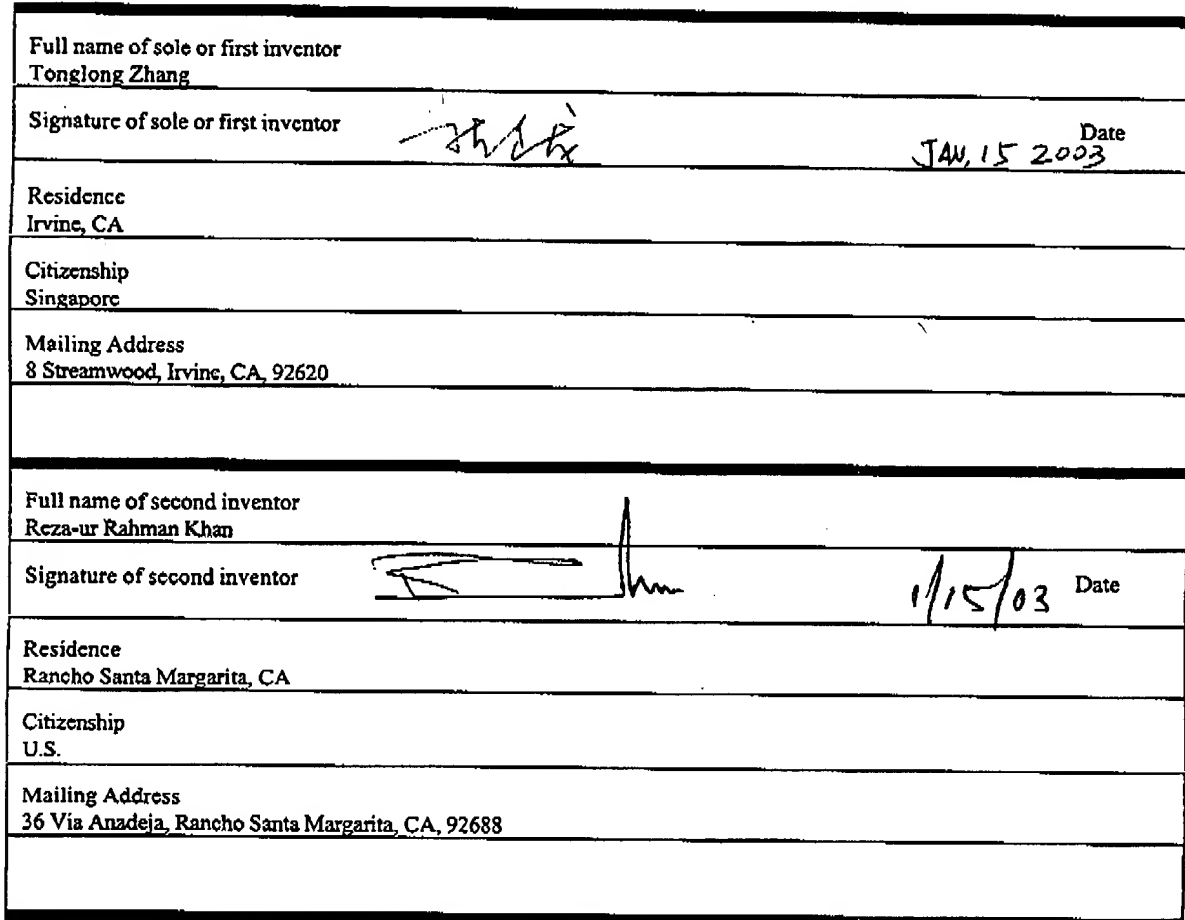 Full name of sole or first inventor
Tonglong Zhang
Signature of sole or first inventor
Date
JAN, 15 2003
Residence
Irvine, CA
Citizenship
Singapore
Mailing Address
8 Streamwood, Irvine, CA, 92620
Full name of second inventor
Reza-ur Rahman Khan
Signature of second inventor
1/15/03 Date
Residence
Rancho Santa Margarita, CA
Citizenship
U.S.
Mailing Address
36 Via Anadeja, Rancho Santa Margarita, CA, 92688